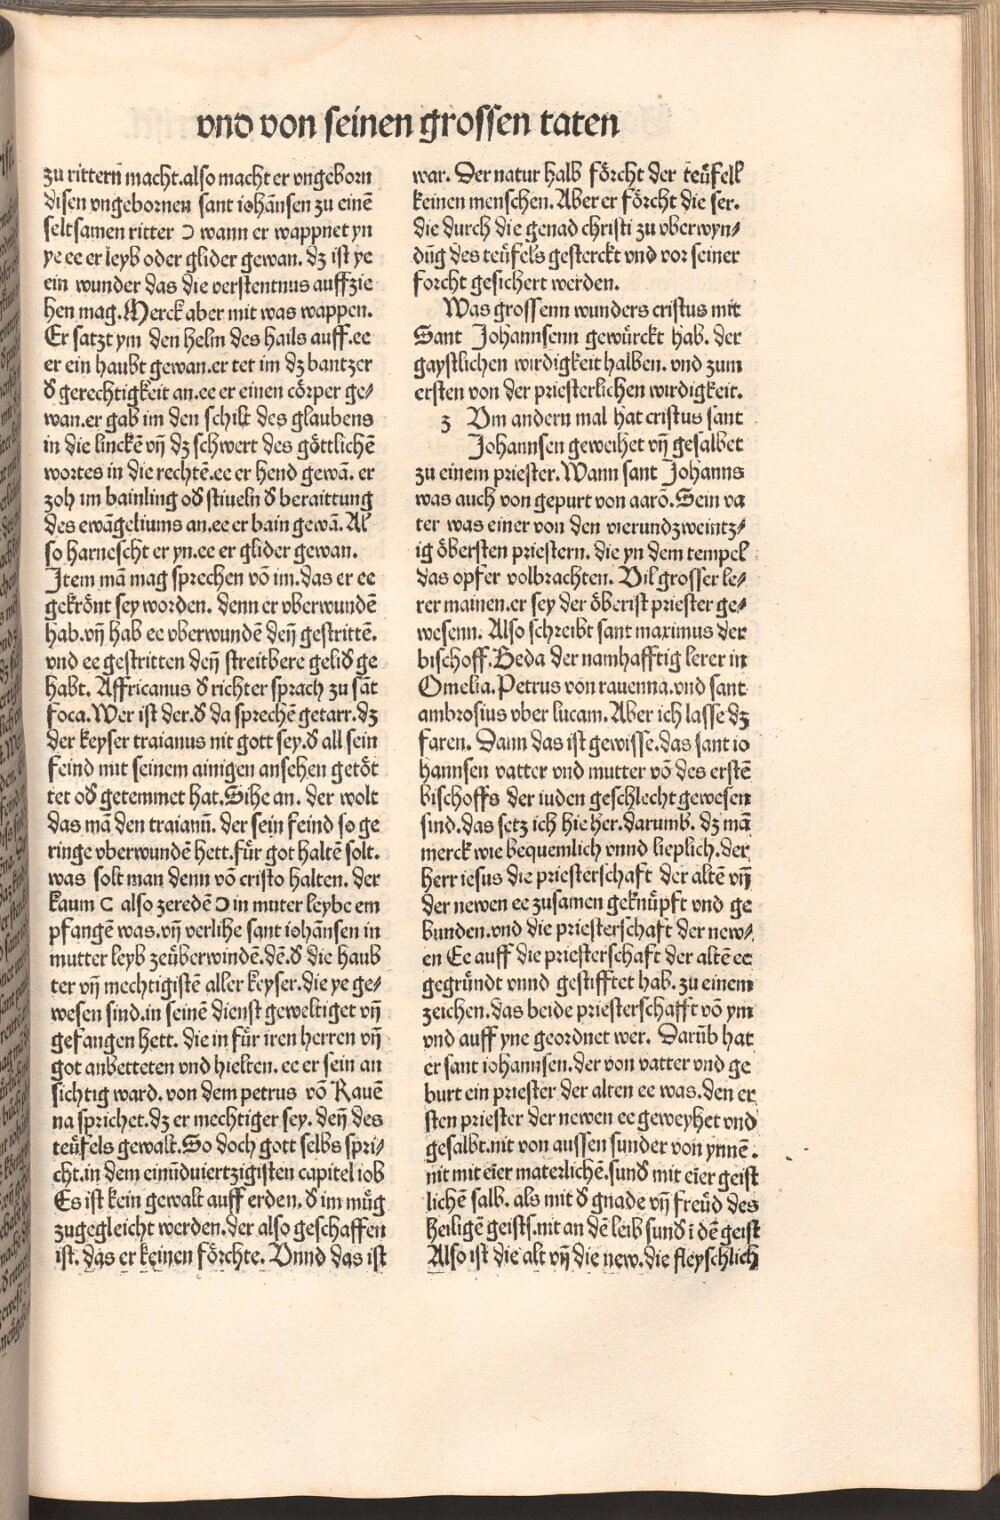 vnd von seinen grossen taten
zu rittern̄ macht.also macht er vngeborn
disen vngebornen sant iohãnsen zu einẽ
seltsamen ritter Ɔ wann er wappnet yn
ye ee er leyb oder glider gewan. dz ist ye
ein wunder das die verstentnus auffzie
hen mag.Merck aber mit was wappen.
Er satzt ym den helm des hails auff.ee
er ein haubt gewan.er tet im dz bantzer
đ gerechtigkeit an.ee er einen cörper ge⸗
wan.er gab im den schilt des glaubens
in die linckẽ vn̄ dz schwert des göttlichẽ
wortes in die rechtẽ.ee er hend gewã. er
zoh im bainling ođ stiueln đ beraittung
des ewãgeliums an.ee er bain gewã. Al
so harnescht er yn.ee er glider gewan.
Item mã mag sprechen võ im.das er ee
gekrönt sey worden. denn er vberwundẽ
hab.vn̄ hab ee vberwundẽ den̄ gestrittẽ.
vnd ee gestritten den̄ streitbere geliđ ge
habt. Affricanus đ richter sprach zu sãt
foca.Wer ist der.đ da sprechẽ getarr.dz
der keyser traianus nit gott sey.đ all sein
feind mit seinem ainigen ansehen getöt
tet ođ getemmet hat.Sihe an. der wolt
das mã den traianū. der sein feind so ge
ringe vberwundẽ hett.für got haltẽ solt.
was solt man denn võ cristo halten. der
kaum C also zeredẽ Ɔ in muter leybe em
pfangẽ was.vn̄ verlihe sant iohãnsen in
mutter leyb zeüberwindẽ.dẽ.đ die haub
ter vn̄ mechtigistẽ aller keyser.die ye ge⸗
wesen sind.in seinẽ dienst geweltiget vn̄
gefangen hett. die in für iren herren vn̄
got anbetteten vnd hielten. ee er sein an
sichtig ward. von dem petrus võ Rauẽ
na sprichet.dz er mechtiger sey. den̄ des
teüfels gewalt.So doch gott selbs spri⸗
cht.in dem einūduiertzigisten capitel iob
Es ist kein gewalt auff erden. đ im müg
zugegleicht werden.der also geschaffen
ist. das er keinen förchte. Vnnd das ist
war. Der natur halb förcht der teüfell
keinen menschen. Aber er förcht die ser.
die durch die genad christi zu vberwyn⸗
dūg des teüfels gesterckt vnd vor seiner
forcht gesichert werden.
Was grossenn wunders cristus mit
Sant Johannsenn gewürckt hab. der
gaystlichen wirdigkeit halben. vnd zum
ersten von der priesterlichen wirdigkeit.
3 Vm andern mal hat cristus sant
Johannsen geweihet vn̄ gesalbet
zu einem priester. Wann sant Johanns
was auch von gepurt von aarõ.Sein va
ter was einer von den vierundzweintz⸗
ig öbersten priestern. die yn dem tempel
das opfer volbrachten. Vil grosser le⸗
rer mainen.er sey der öberist priester ge⸗
wesenn. Also schreibt sant maximus der
bischoff.Beda der namhafftig lerer in
Omelia.Petrus von rauenna.vnd sant
ambrosius vber lucam. Aber ich lasse dz
faren. Dann das ist gewisse.das sant io
hannsen vatter vnd mutter võ des erstẽ
bischoffs der iuden geschlecht gewesen
sind.das setz ich hie her.darumb. dz mã
merck wie bequemlich vnnd lieplich.der
herr iesus die priesterschaft der altẽ vn̄
der newen ee zusamen geknüpft vnd ge
bunden.vnd die priesterschaft der new⸗
en Ee auff die priesterschaft der altẽ ee
gegründt vnnd gestifftet hab. zu einem
zeichen.das beide priesterschafft võ ym
vnd auff yne geordnet wer. Darūb hat
er sant iohannsen.der von vatter vnd ge
burt ein priester der alten ee was.den er
sten priester der newen ee geweyhet vnd
gesalbt.nit von aussen sunder von ynnẽ.
nit mit eīer materlichẽ.sunđ mit eīer geist
lichẽ salb. als mit đ gnade vn̄ freüd des
heiligẽ geists.nit an dẽ leib sunđ ī dẽ geist
Also ist die alt vn̄ die new.die fleyschlich